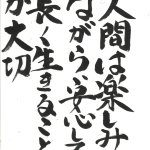 人間は楽しみ
ながら、安心して
長く生きること
が大切